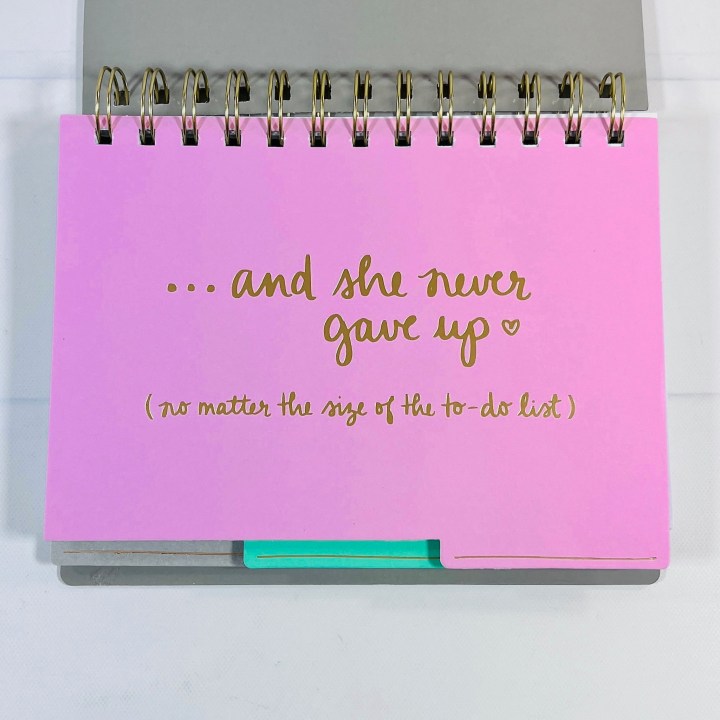 ...and she never
gave up ♡
(no matter the size of the to-do list)